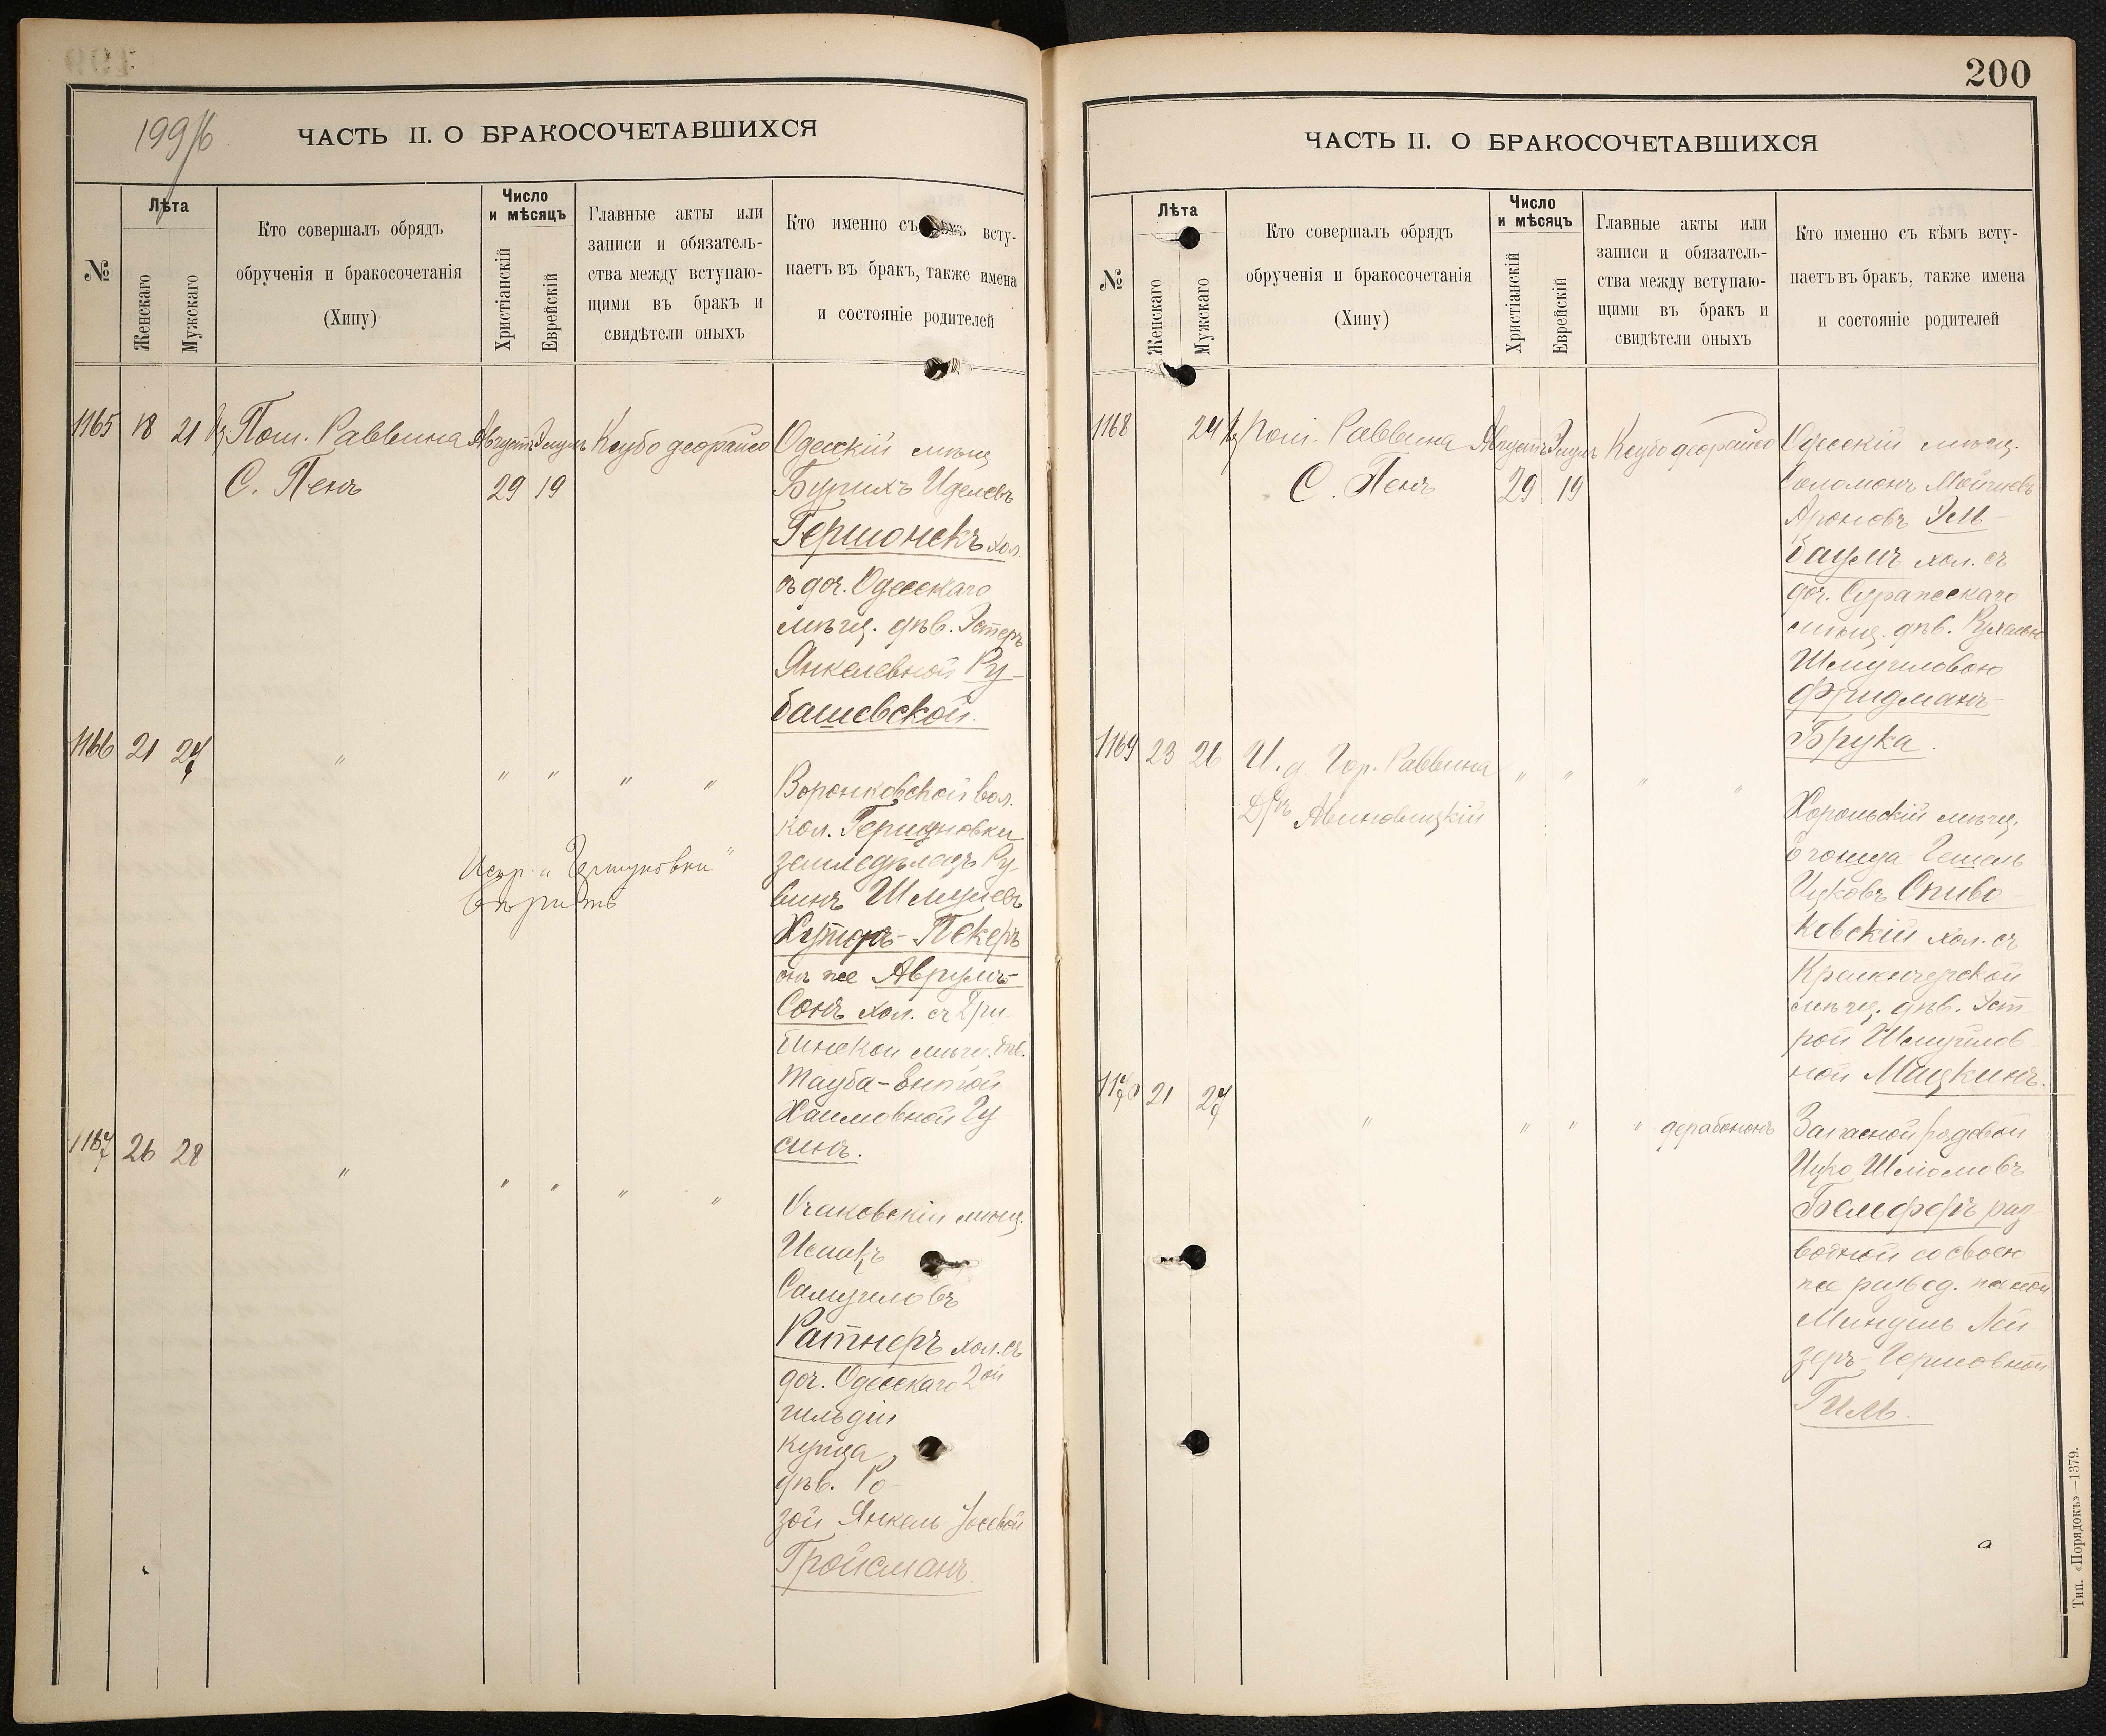 199/б
ЧАСТЬ II. О БРАКОСОЧЕТАВШИХСЯ
№
Лѣта
Женскаго
Мужскаго
Кто совершалъ обрядъ
обрученія и бракосочетанія
(Хипу)
Число
и мѣсяцъ
Христіанскій
Еврейскій
Главные акты или
записи и обязатель-
ства между вступаю-
щими въ бракъ и
свидѣтели оныхъ
Кто именно съ всту-
паетъ въ бракъ, также имена
и состояніе родителей
1165 18 21 Пом. Раввина Августъ Элулъ Ксубо деорайсо
С. Пенъ 29 19
Одесскій мѣщ.
Бурихъ Иделевъ
Гершонокъ хол.
съ доч. Одесскаго
мѣщ. дѣв. Эстеръ
Янкелевной Ру-
башевской.
1166 21 27 " " " " "
Воронковской вол.
кол. Гершуновки
земледѣлецъ Ру-
винъ Шмулевъ
Хуторъ-Пекеръ
онъ же Аврумъ-
Сонъ хол. съ
мѣщ. дѣв.
Тауба-Ентой
Хаимовной Гу
синъ.
Испр. "Гершуновки"
вѣрить
1167 26 28 " " " " "
Очаковскій мѣщ.
Исаакъ
Самуиловъ
Ратнеръ хол. съ
доч. Одесскаго 2ой
гильдіи
купца
дѣв. Ро-
зой Янкель-Іосевой
Гройсманъ.
200
ЧАСТЬ II. О БРАКОСОЧЕТАВШИХСЯ
№
Лѣта
Женскаго
Мужскаго
Кто совершалъ обрядъ
обрученія и бракосочетанія
(Хипу)
Число
и мѣсяцъ
Христіанскій
Еврейскій
Главные акты или
записи и обязатель-
ства между вступаю-
щими въ бракъ и
свидѣтели оныхъ
Кто именно съ кѣмъ всту-
паетъ въ бракъ, также имена
и состояніе родителей
1168 24 Пом. Раввина Августъ Элулъ Ксубо деорайсо
С. Пенъ 29 19
Одесскій мѣщ.
Соломонъ
Ароновъ Эль-
баумъ хол. съ
доч. Суражскаго
мѣщ. дѣв.
Шмуиловою
Фридманъ-
Брука.
1169 23 26 И. д. Гор. Раввина " " " "
Дръ Авиновицкій
Хорольскій мѣщ.
Гешель
Ицковъ Спиво-
ковскій хол. съ
Кременчугской
мѣщ. дѣв. Эст
рой Шмуилов
ной Мацкинъ.
1170 21 27 " " " " дерабононъ
Запасной рядовой
Ицко Шліомовъ
Бельферъ раз-
водной со своей
же развед. женой
Миндель Лей
зеръ-Гершовной
Гиль.
Тип. «Порядокъ»—1379.